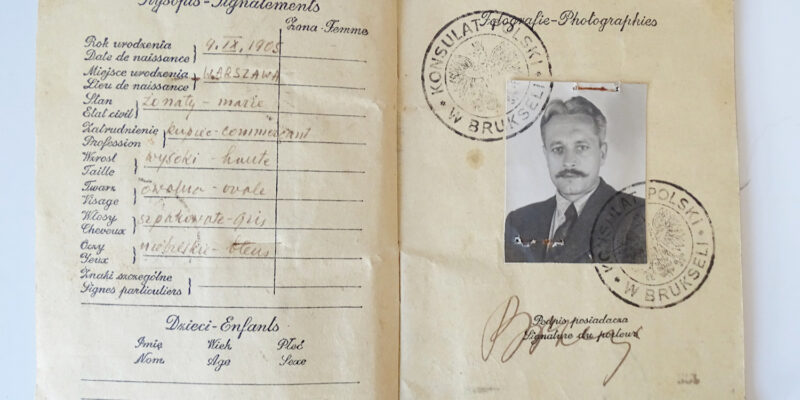 Rysopis-Signalements
Żona-Femme
Rok urodzenia
Date de naissance
9.IX.1905
Miejsce urodzenia
Lieu de naissance
WARSZAWA
Stan
Etat civil
żonaty - marié
Zatrudnienie
Profession
kupiec-commerçant
Wzrost
Taille
wysoki - haute
Twarz
Visage
owalna - ovale
Włosy
Cheveux
szpakowate - gris
Oczy
Yeux
niebieskie - bleus
Znaki szczególne
Signes particuliers
Dzieci-Enfants
Imię Wiek Płeć
Nom Age Sexe
Fotografie-Photographies
KONSULAT POLSKI
W BRUKSELI
KONSULAT POLSKI
W BRUKSELI
Podpis posiadacza
Signature du porteur